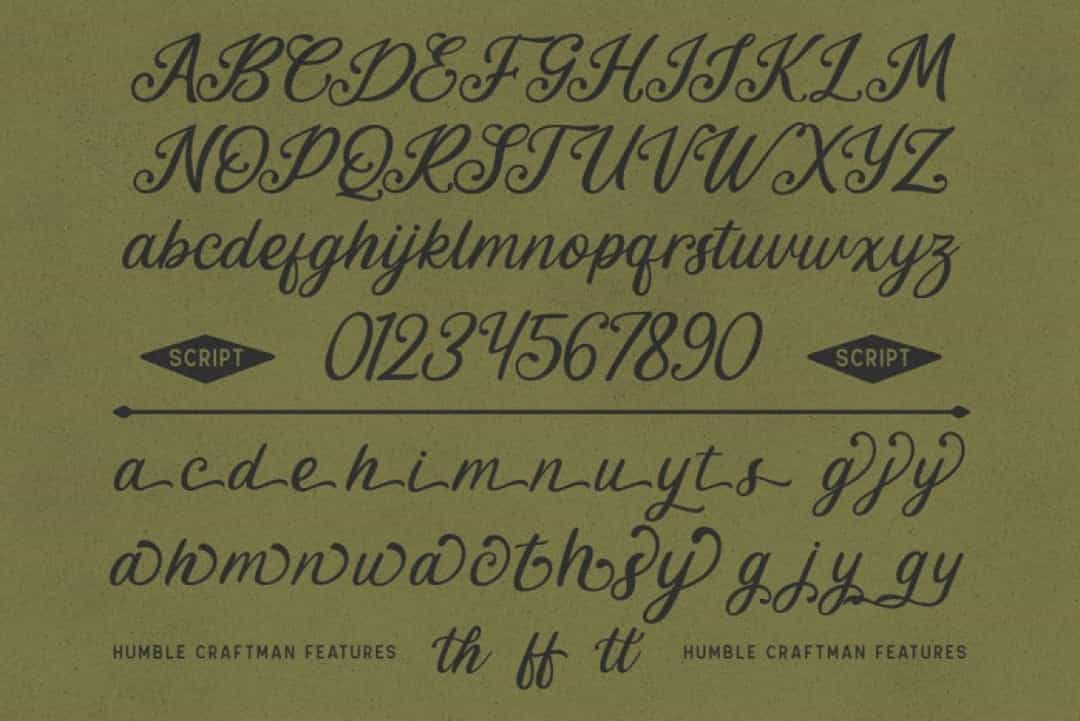 ABCDEFGHIJKLM
NOPQRSTUVWXYZ
abcdefghijklmnopqrstuvwxyz
SCRIPT 01234567890 SCRIPT
a c d e h i m n u y t s g j y
a h m n w a o t h s y g j y g y
HUMBLE CRAFTMAN FEATURES th ff tt HUMBLE CRAFTMAN FEATURES